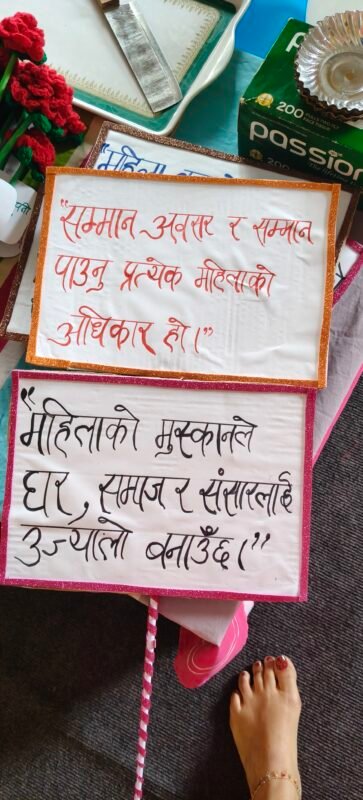 200
passion
200
"महिला
"सम्मान अवसर र सम्मान
पाउनु प्रत्येक महिलाको
अधिकार हो।"
"महिलाको मुस्कानले
घर, समाज र संसारलाई
उज्यालो बनाउँछ।"